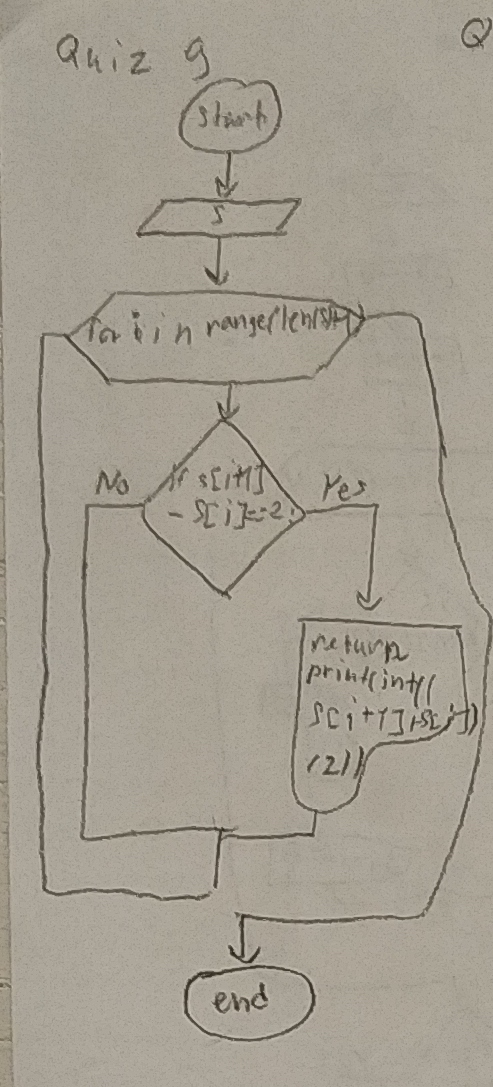 Quiz 9
Q
Start
S
for i in range(len(s)-1)
if s[i+1]
- s[i]==2:
No
Yes
return
print(int((
s[i+1]+s[i])
/2))
end